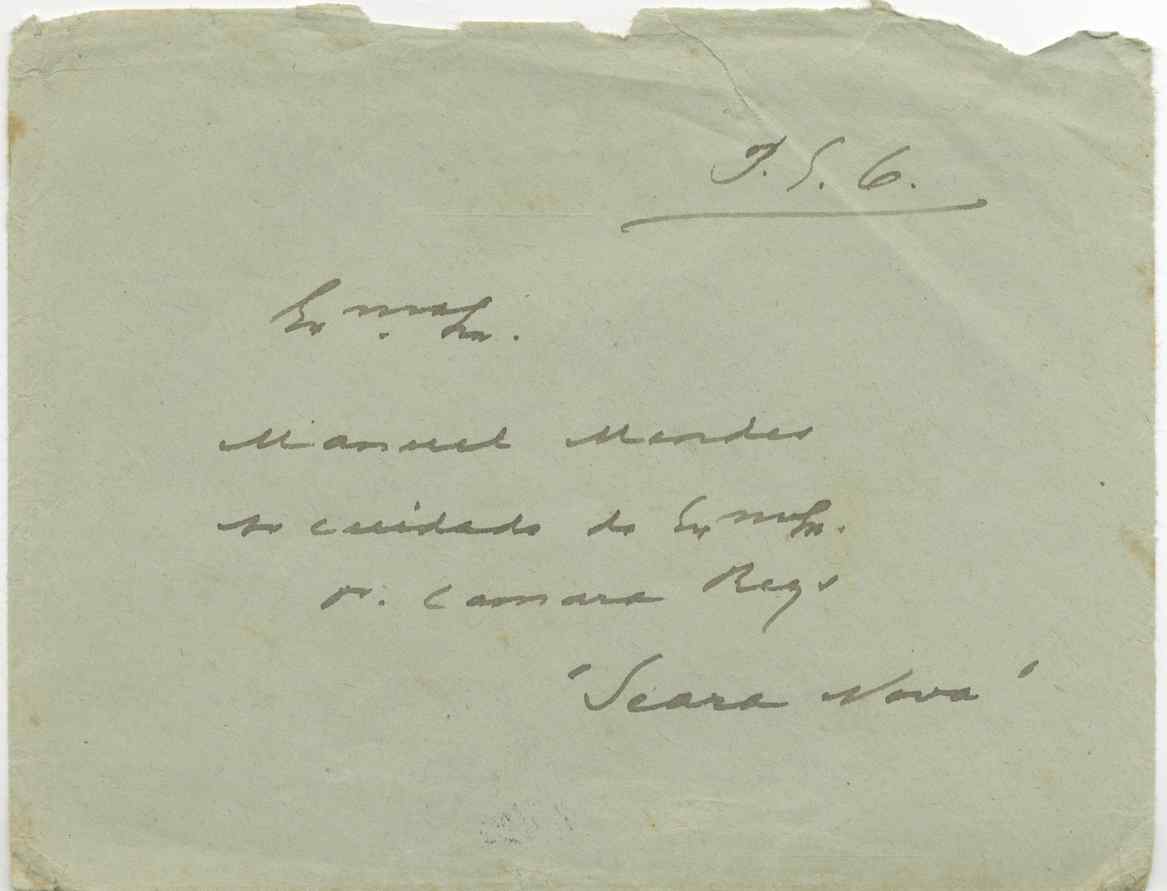 P. S. G.
Exmo Sr.
Manuel Mendes
Ao cuidado do Exmo Sr.
Dr. Camara Reys
"Seara Nova"